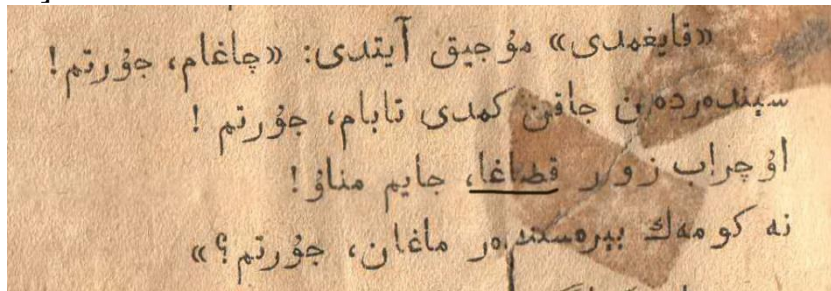 «قايغمدى» مۇجيق آيتدى: «چاغام، جۇرتم!
سيندەردەن جاقن كمدى تابام، جۇرتم!
اۇچراب زور قطاغا، جايم مناۇ!
نە كومەك بيرەسيندەر ماغان، جۇرتم؟»